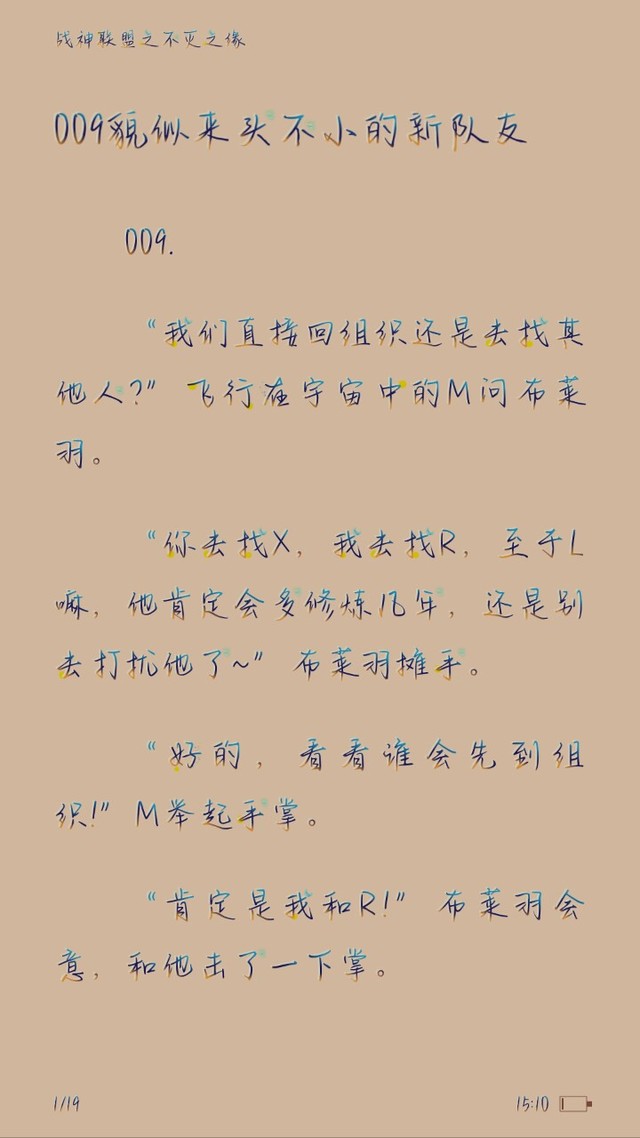 战神联盟之不灭之缘
009貌似来头不小的新队友
009.
“我们直接回组织还是去找其
他人?”飞行在宇宙中的M问布莱
羽。
“你去找X，我去找R，至于L
嘛，他肯定会多修炼几年，还是别
去打扰他了~”布莱羽摊手。
“好的，看看谁会先到组
织!”M举起手掌。
“肯定是我和R!”布莱羽会
意，和他击了一下掌。
1/19
15:10